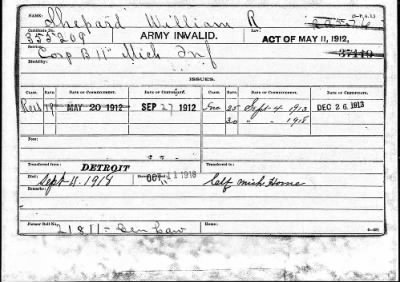 NAME: Shepard William R
Certificate No. 355209 ARMY INVALID. ACT OF MAY 11, 1912,
Service: Corp B 11" Mich Inf 37110
Disability:
ISSUES.
CLASS. RATE. DATE OF COMMENCEMENT. DATE OF CERTIFICATE. CLASS. RATE. DATE OF COMMENCEMENT. DATE OF CERTIFICATE.
19 MAY 20 1912 SEP 27 1912 Inc 25 Sept 4 1913 DEC 26 1913
30 " " 1918
Fees:
Transferred from: DETROIT Transferred from:
Died: Sept 11. 1918 OCT 11 1918 Calf Mich Home
Remarks:
Former Roll No. 21811 - Gen Law Home: